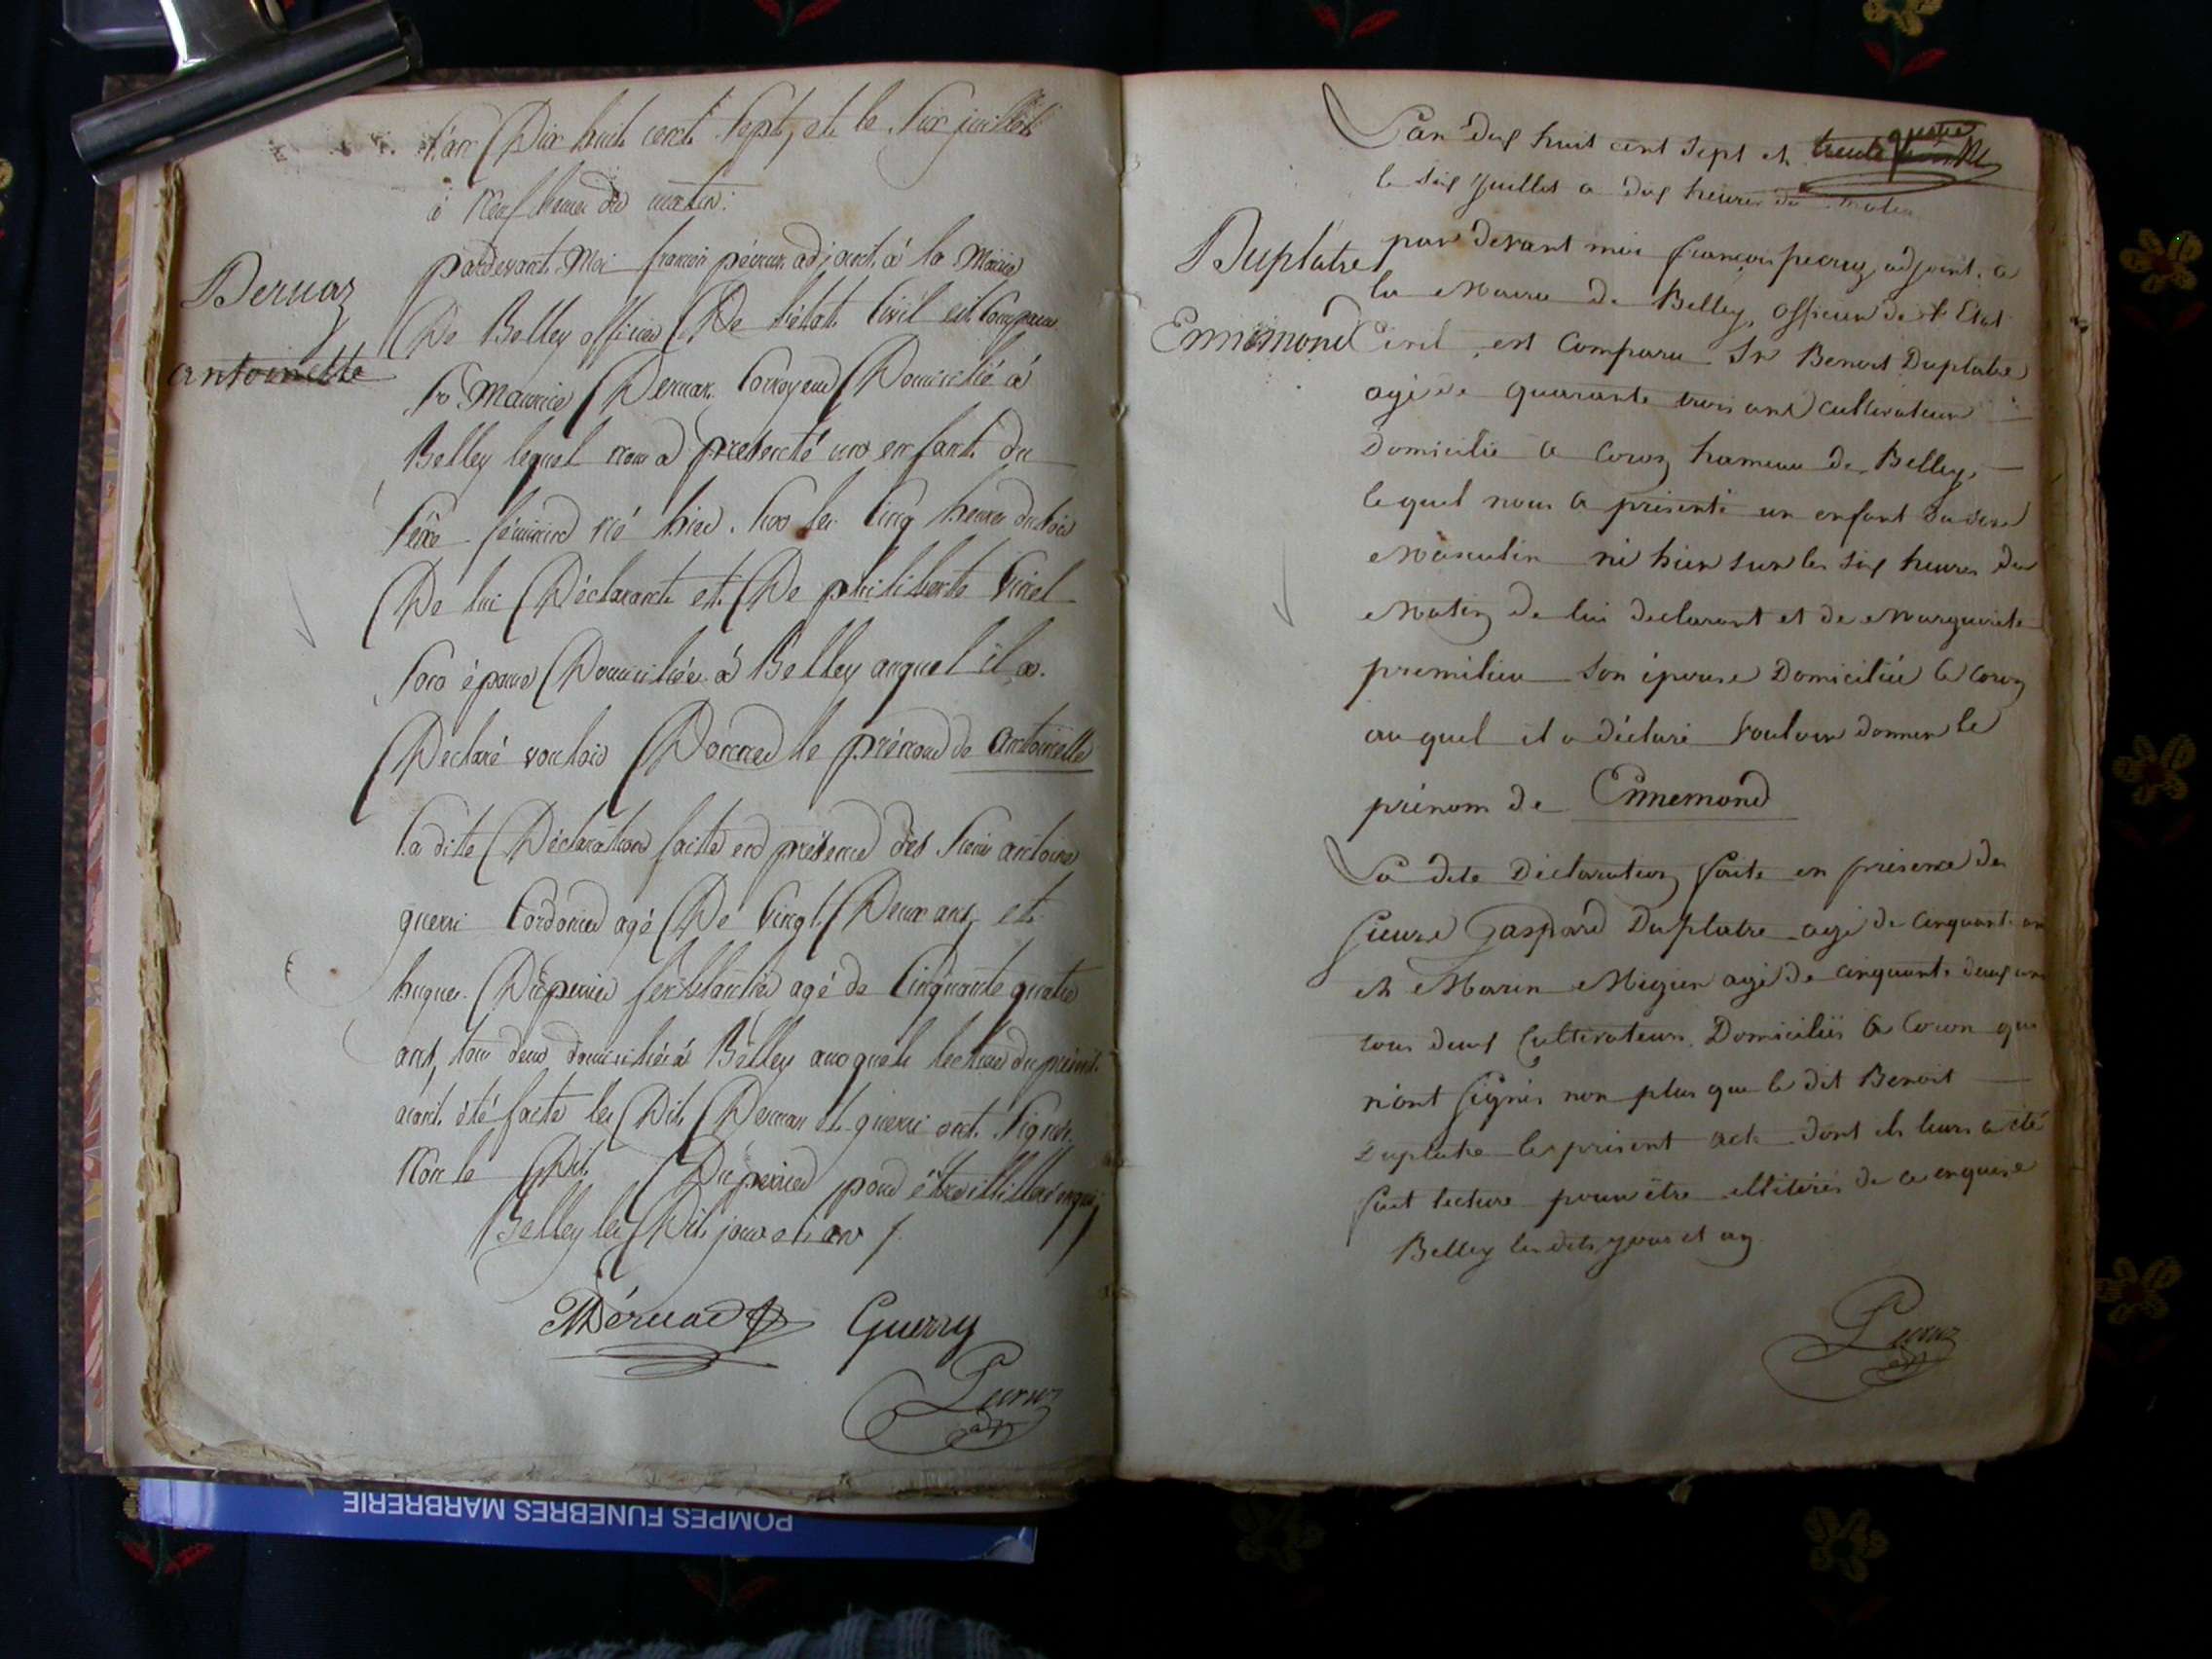 L'an Dix huit cent Sept, et le Six juillet
à Neuf heures du matin:
Dervaz
antoinette
pardevant Moi françois pécruz adjoint à la Mairie
De Belley officier De l'état Civil est Comparu
Sr Maurice Dervaz Corroyeur Domicilié à
Belley lequel nous a présenté un enfant du
Sexe féminin né hier Sur les Cinq heures du Soir
De lui Déclarant et De philiberte
Son épouse Domiciliée à Belley auquel il a
Déclaré vouloir Donner le prénom de Antoinette
la dite Déclaration faite en présence des Sieurs antoine
guerri Cordonier agé De Vingt Deux ans, et
hugues Duperrier ferblantier agé de Cinquante quatre
ans, tous deux domiciliés à Belley auxquels lecture du présent
aiant été faite les Dits Dervaz et guerri ont Signés
Non le Dit Duperrier pour être illitteré enquis
Belley les Dits jour et an
MDéruaz Guerry
Pecruz
adj
L'an dix huit cent Sept et trente quatre
le Six Juillet a dix heures du matin
Duplatre
Ennemond
par devant moi françois pecruz adjoint a
la Mairie de Belley, officier de l'Etat
Civil est Comparu Sr Benoit Duplatre
agé de quarante trois ans Cultivateur
Domicilié a Coron hameau de Belley,
lequel nous a présenté un enfant du sexe
Masculin né hier sur les Six heures du
Matin de lui declarant et de Marguerite
premilieu Son épouse Domiciliée a Coron
auquel il a déclaré Vouloir donner le
prénom de Ennemond
La dite Déclaration faite en présence des
Sieurs Gaspard Duplatre agé de Cinquante ans
et Marin Migieu agé de cinquante deux ans
tous deux Cultivateurs Domiciliés a Coron qui
n'ont Signés non plus que le dit Benoit
Duplatre le présent acte dont il leurs a été
fait lecture pour être illitérés de ce enquis
Belley les dits jour et an
Pecruz
adj
POMPES FUNEBRES MARBRERIE